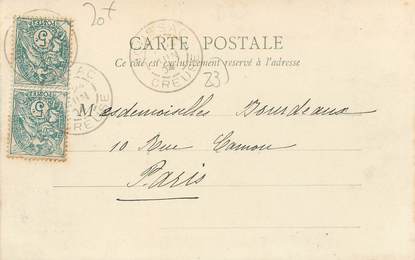 20+
CARTE POSTALE
Ce côté est exclusivement réservé à l'adresse
CREUSE
23
5
5
CREUSE
Mesdemoiselles Bourdeaux
10 Rue Camou
Paris